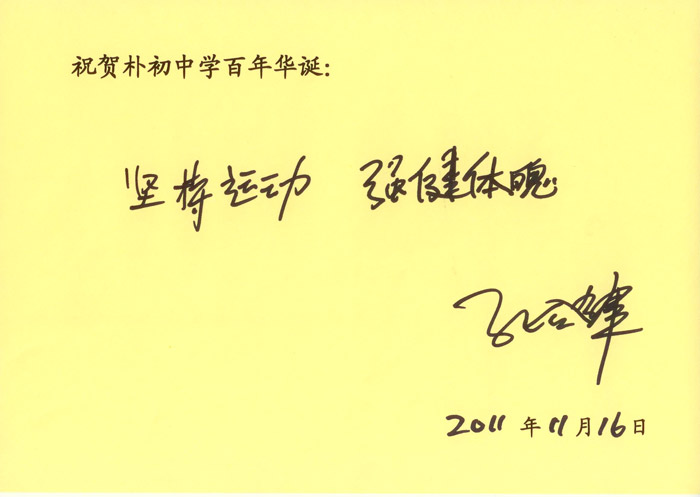 祝贺朴初中学百年华诞：
坚持运动 强健体魄
2011 年 11 月 16 日